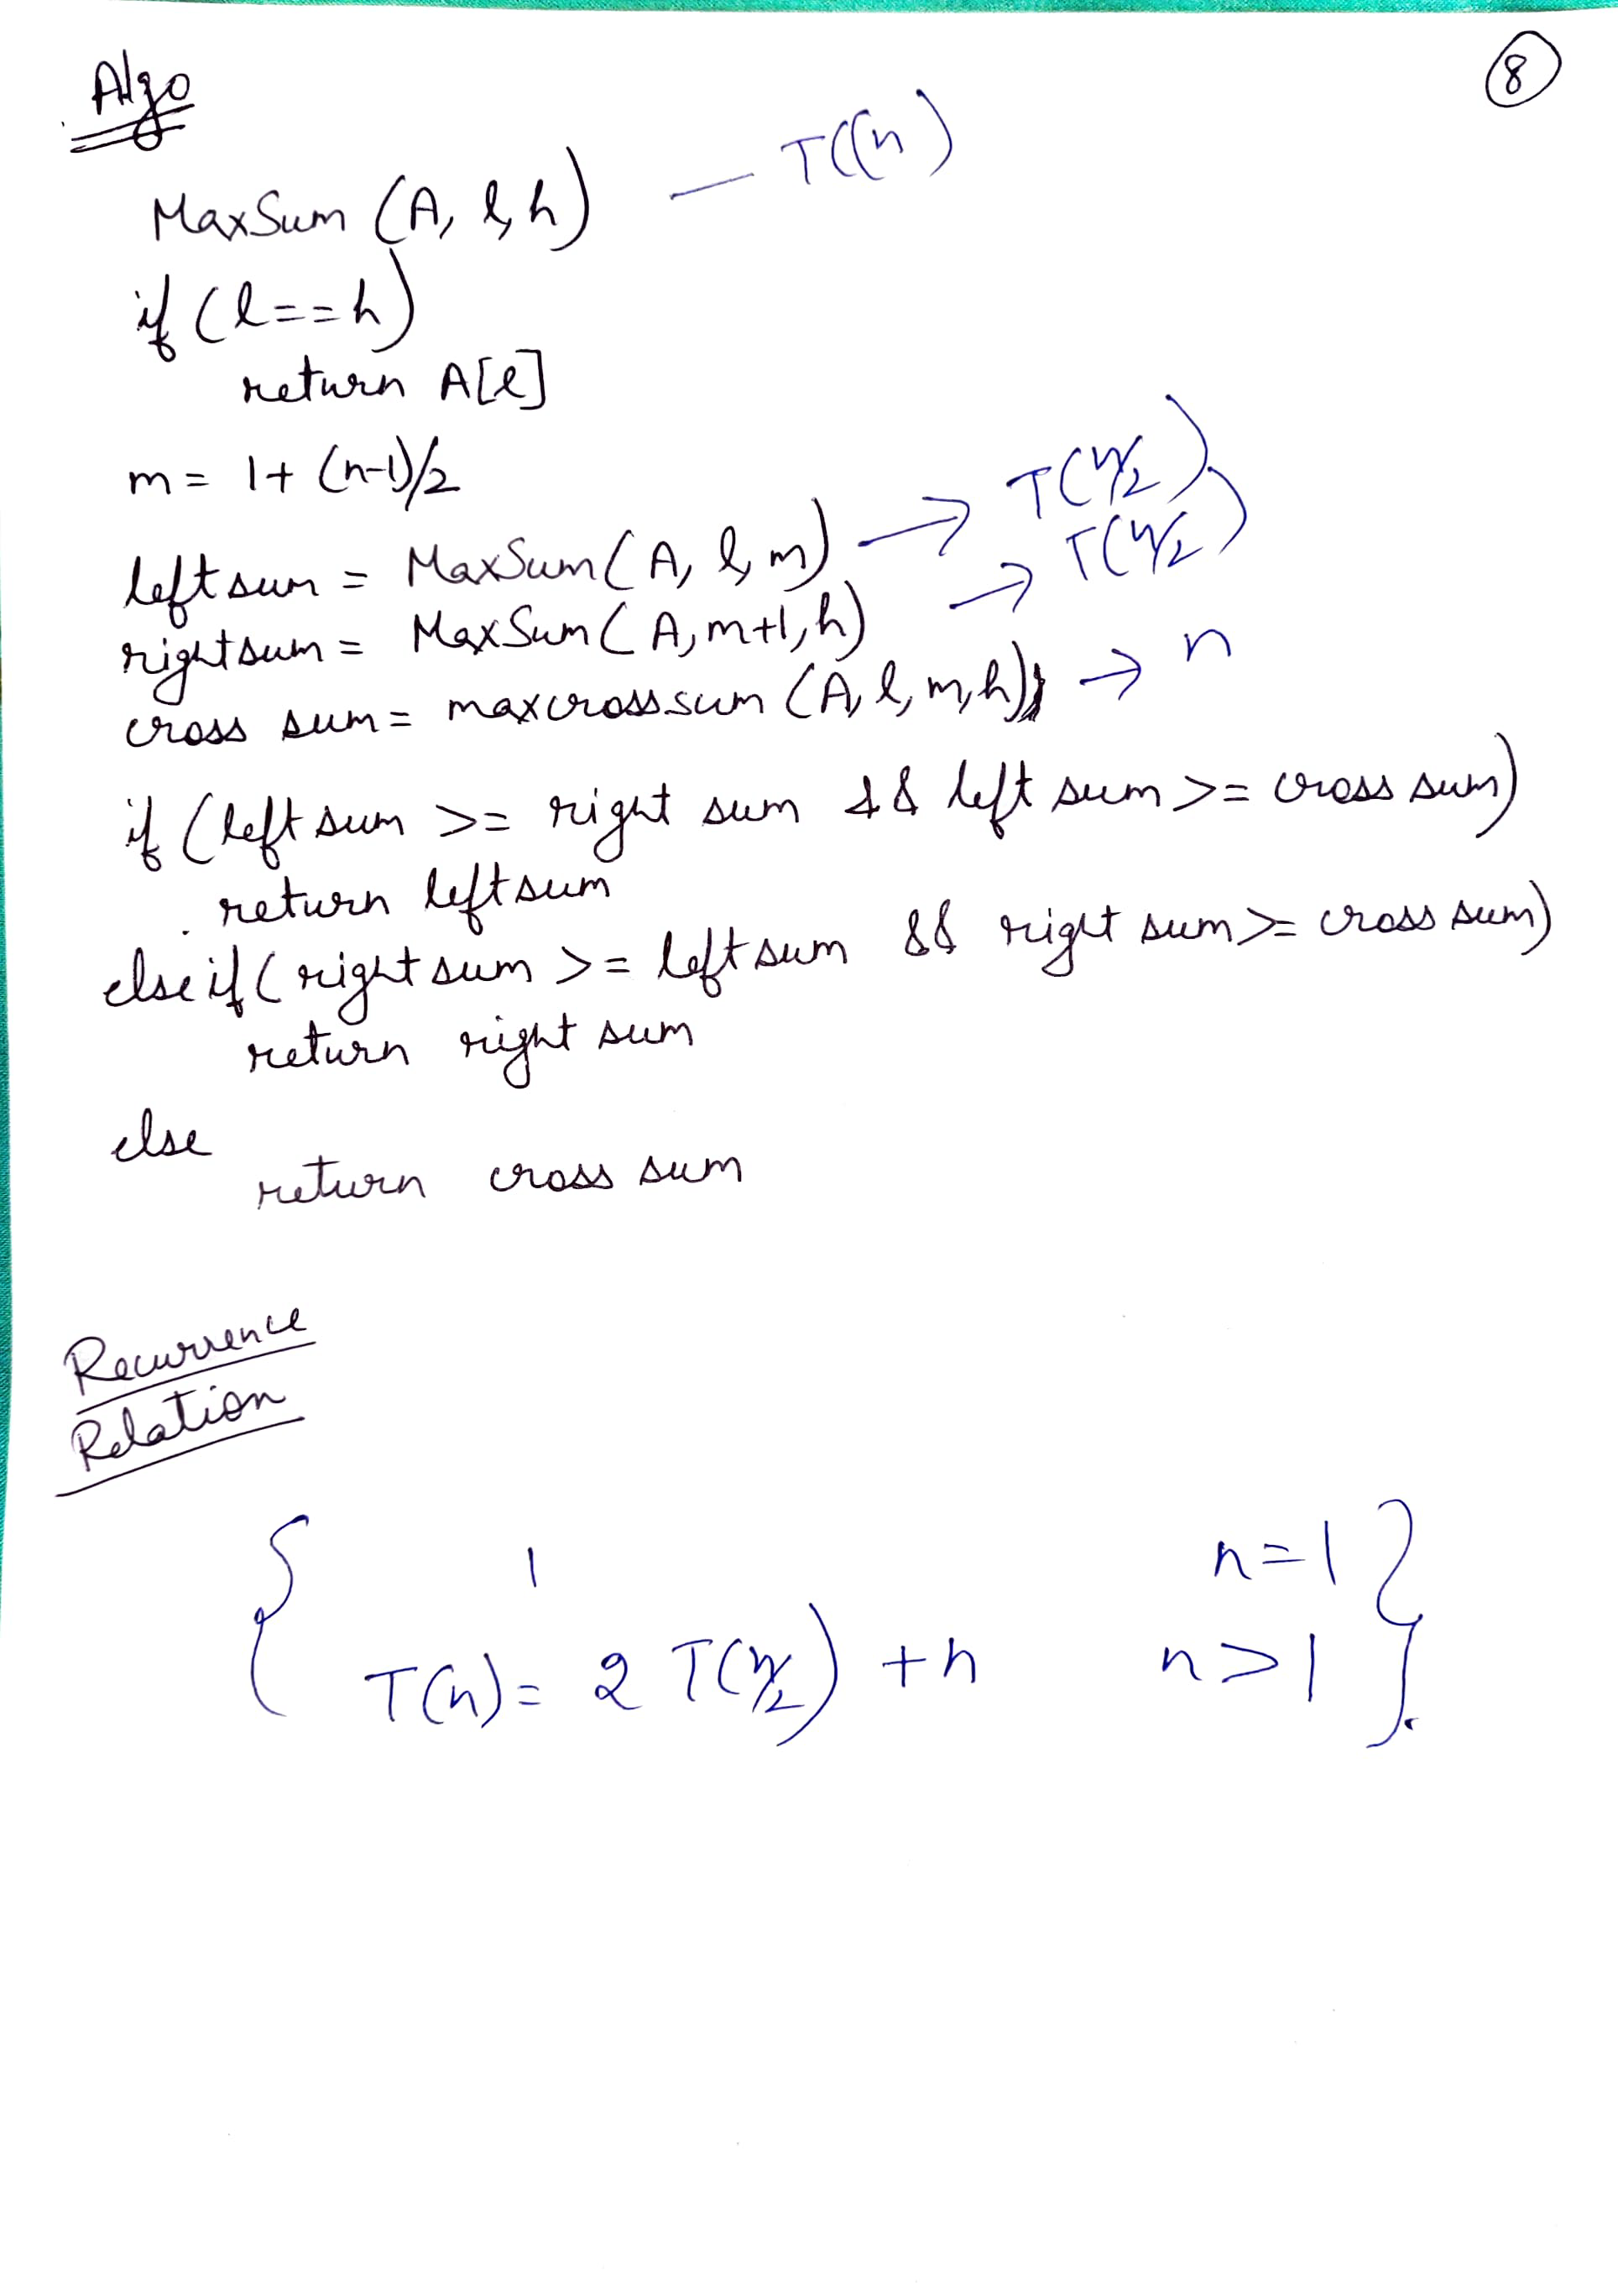 Algo
8
MaxSum (A, l, h) — T((n)
if (l==h)
return A[l]
m = 1+ (n-1)/2
left sum = MaxSum(A, l, m) → T(n/2)
right sum = MaxSum(A, m+1, h) → T(n/2)
cross sum = maxcrosssum (A, l, m, h) → n
if (left sum >= right sum && left sum >= cross sum)
return left sum
else if (right sum >= left sum && right sum >= cross sum)
return right sum
else
return cross sum
Recurrence
Relation
{ 1 n=1 }
T(n) = 2 T(n/2) + n n>1